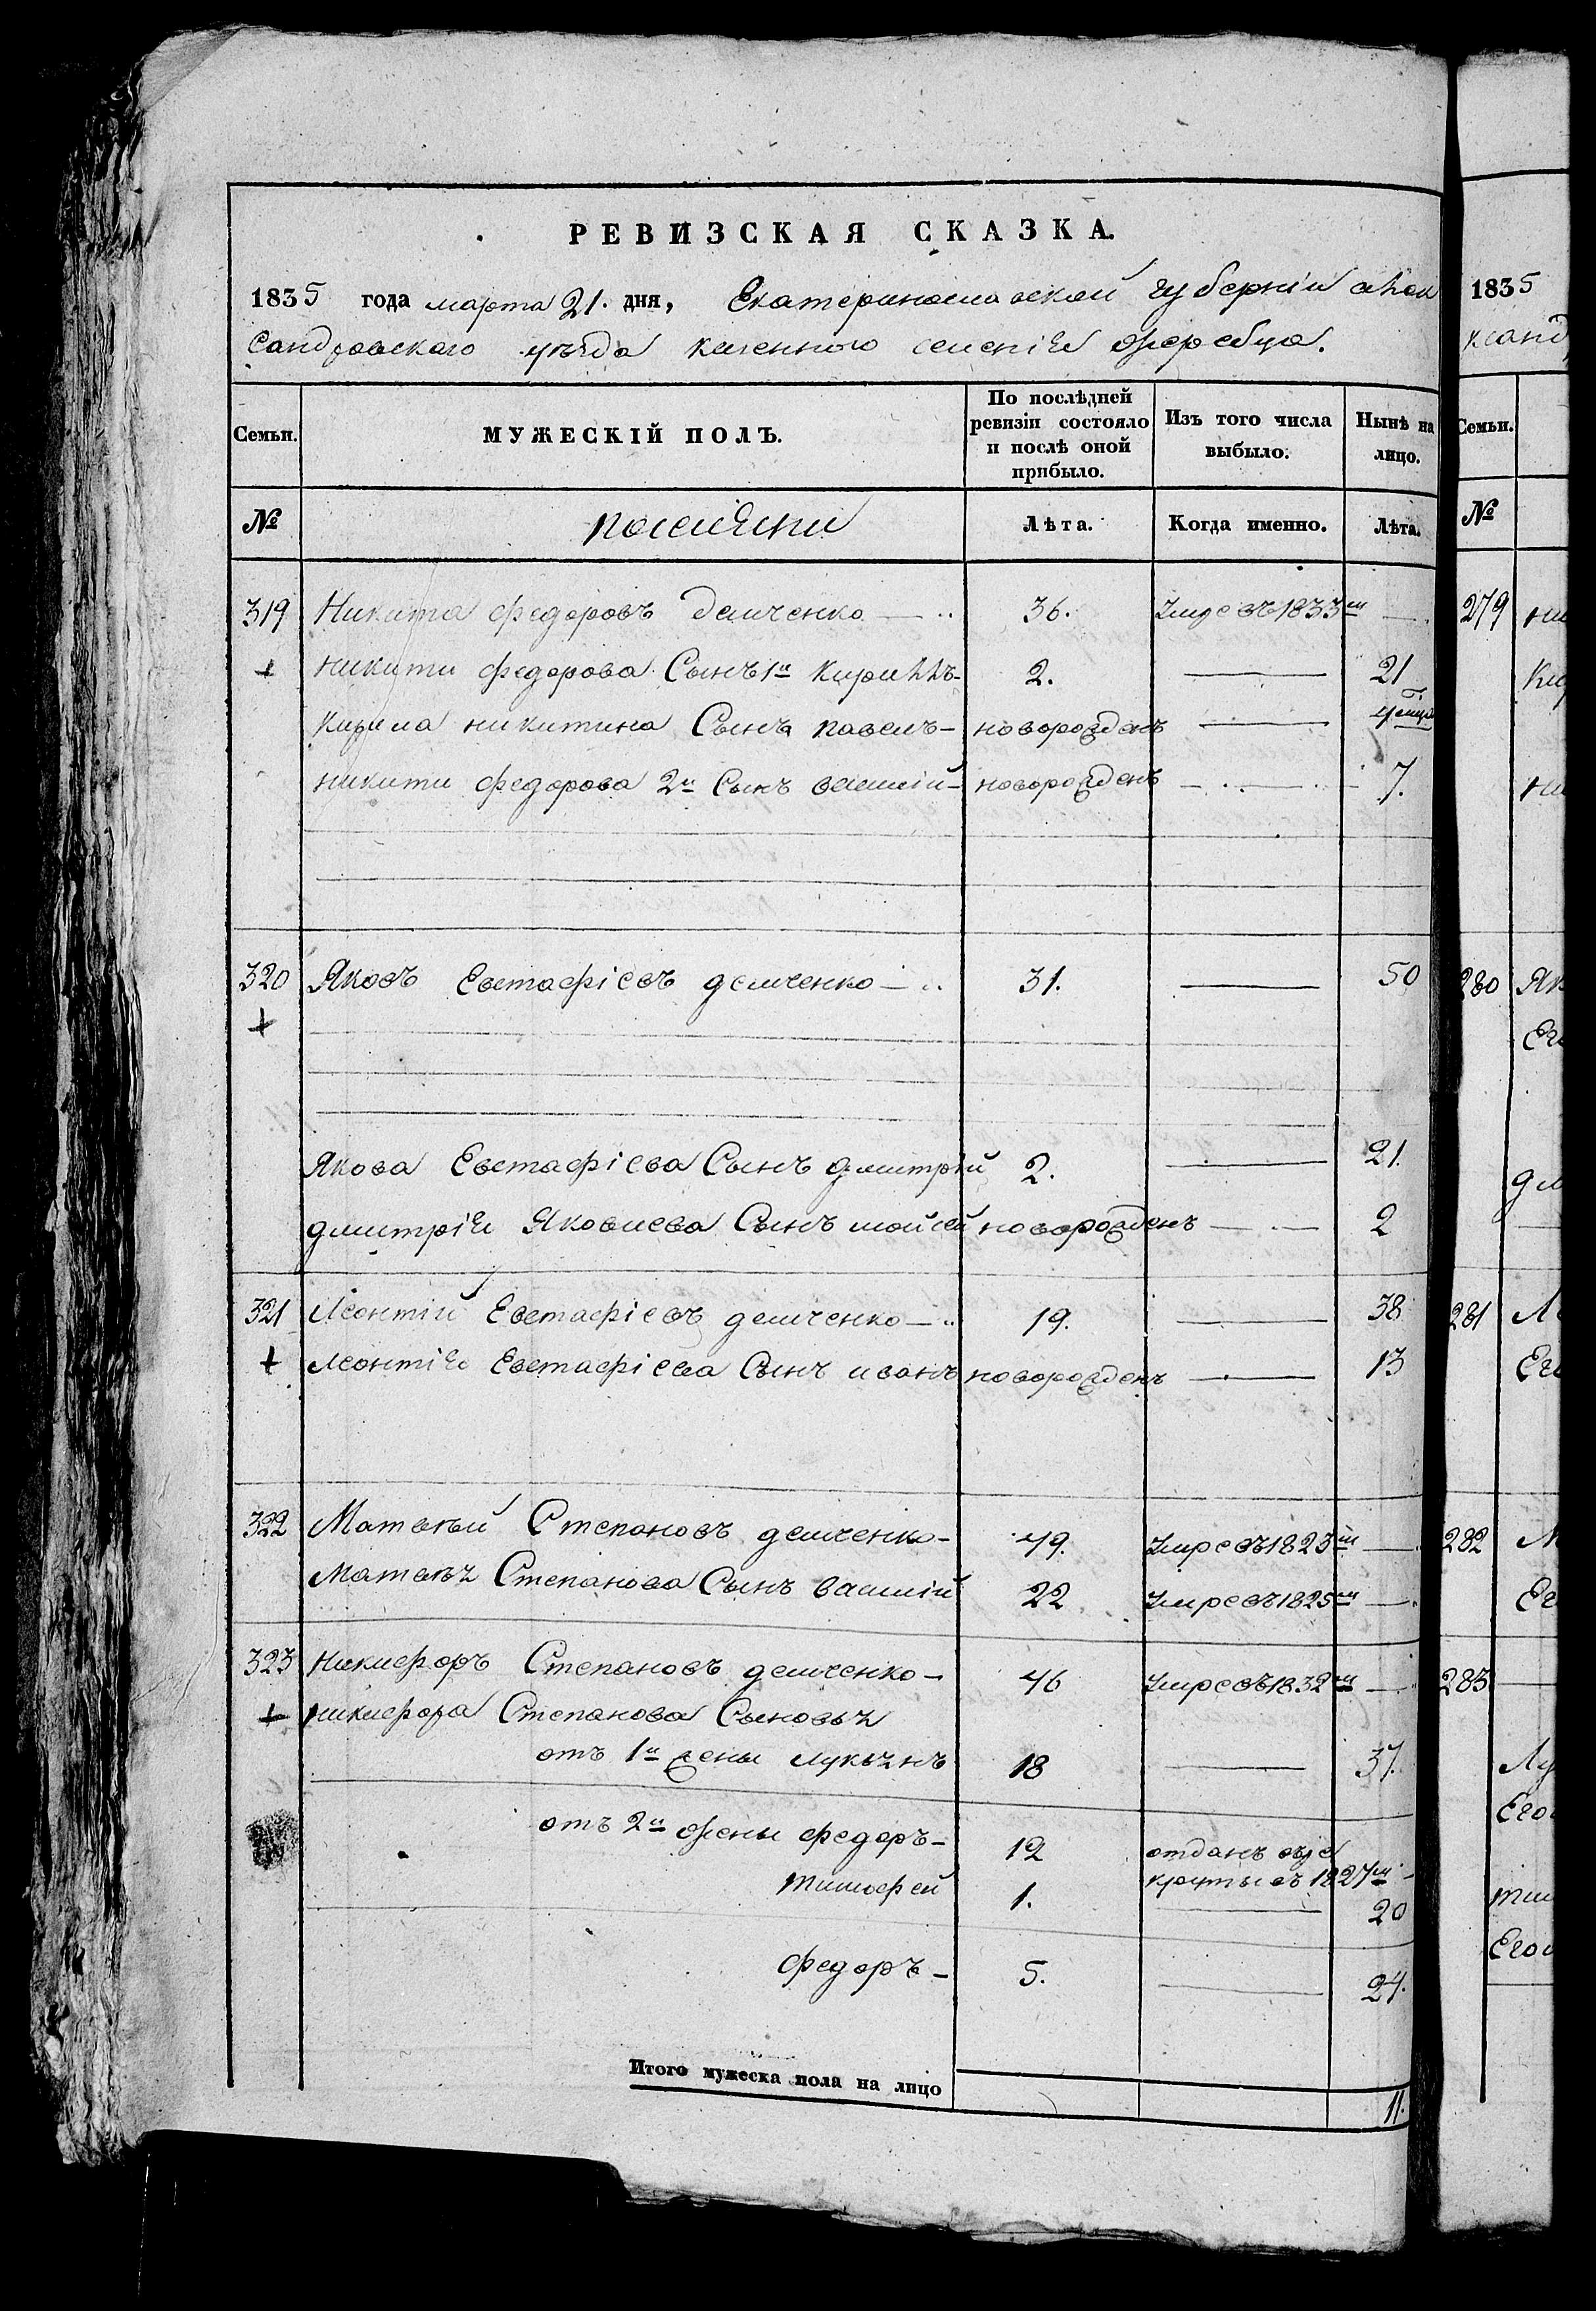 РЕВИЗСКАЯ СКАЗКА.
1835 года марта 21. дня, Екатеринославской губерніи алек
сандровского уѣзда казенного селенія жеребца.
Семьи.
МУЖЕСКІЙ ПОЛЪ.
По послѣдней ревизіи состояло и послѣ оной прибыло.
Изъ того числа выбыло.
Нынѣ на лицо.
№
поселяни
Лѣта.
Когда именно.
Лѣта.
319 Никита федоровъ демченко 36. Умре въ 1833м
+ никити федорова Сынъ 1й кирилъ 2. 21
кирила никитина Сынъ павелъ новорожденъ 4 мца
никити федорова 2й Сынъ василій новорожденъ 7.
320 Яковъ Евстафіевъ демченко 31. 50
+
Якова Евстафіева Сынъ дмитрій 2. 21.
дмитрія Яковлева Сынъ мойсей новорожденъ 2
321 Леонтій Евстафіевъ демченко 19. 38
+ леонтія Евстафіева Сынъ иванъ новорожденъ 13
322 Матвѣй Степановъ демченко 49. Умре въ 1823м
матвѣя Степанова Сынъ василій 22 Умре въ 1825м
323 никифоръ Степановъ демченко 46 Умре въ 1832м
+ никифора Степанова Сыновья
отъ 1й жены лукьянъ 18 37.
отъ 2й жены федоръ 12 отданъ въ ре
круты въ 1827м
тимофей 1. 20
федоръ 5. 24.
Итого мужеска пола на лицо 11.
1835
ксанд
Семьи.
№
279 ни
ки
ни
280 Як
Ег
дм
281 Ле
Ег
282 М
Ег
283
Лу
Его
тим
Его